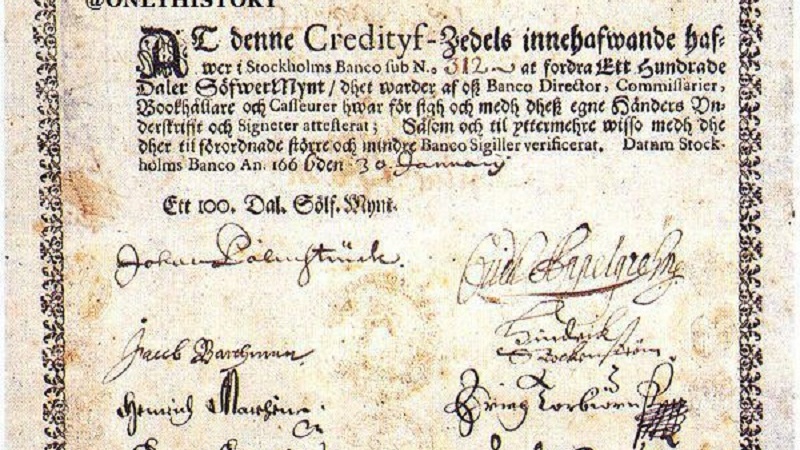 @ONLYHISTORY
AT denne Credityf-Zedels innehafwande haf-
wer i Stockholms Banco sub N.o 312 at fordra Ett Hundrade
Daler Sölfwer Mynt / dhet warder af oß Banco Director, Commissarier,
Bookhållare och Casseurer hwar för sigh och medh dheß egne Händers Vn-
derskrifft och Signeter attesterat; Såsom och til yttermehre wisso medh dhe
dher til förordnade större och mindre Banco Sigiller verificerat. Datum Stock-
holms Banco An. 166 6 den 30 January
Ett 100. Dal. Sölf. Mynt.
Johan Palmstruck.
Jacob Barchman
Hindrick